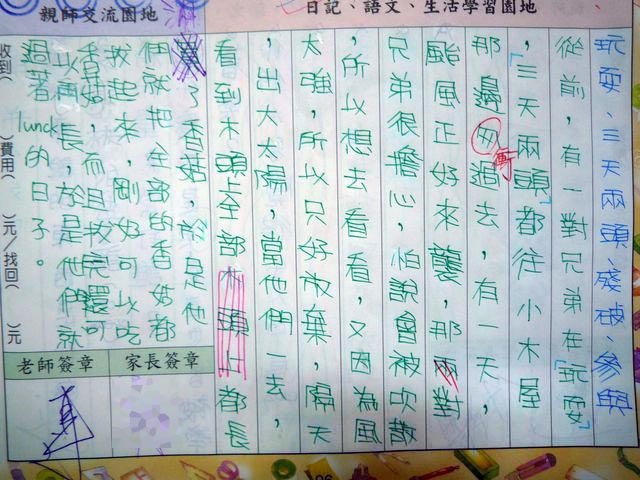 日記、語文、生活學習園地
玩耍、三天兩頭、殘破、參與
從前,有一對兄弟在「玩耍」
,「三天兩頭」都往小木屋
那邊匆過去,有一天,
衝
颱風正好來襲,那兩對
兄弟很擔心,怕說會被吹散
,所以想去看看,又因為風
太強,所以只好放棄,隔天
,出大太陽,當他們一去,
看到木頭上全部木頭上都長
親師交流園地
了香菇,於是他
們就把全部的香菇都
拔起來,剛好可以吃
香菇,而且拔完還可
以再長,於是他們就
過著lunck的日子。
收到( )費用( )元/找回( )元
家長簽章
老師簽章